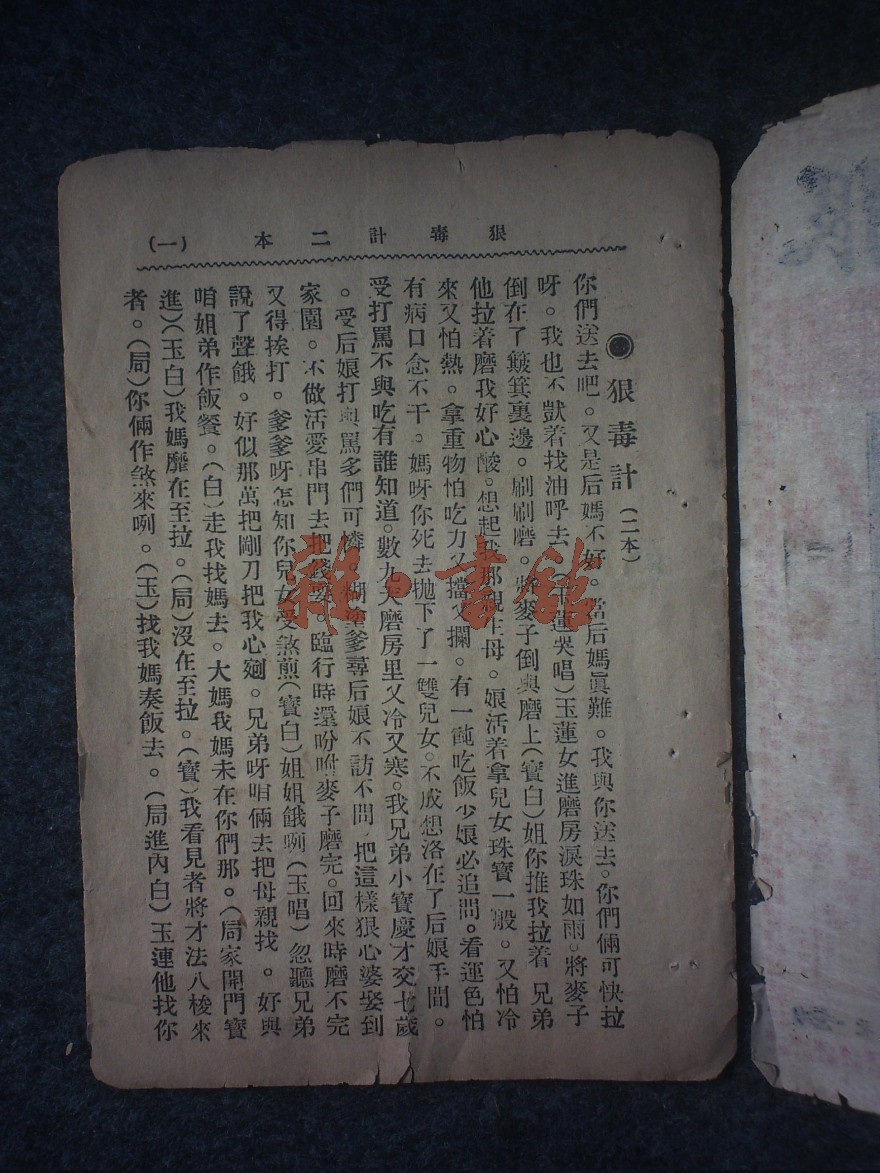 狠毒計二本 (一)
●狠毒計(二本)
你們送去吧。又是后媽不好。當后媽眞難。我與你送去。你們倆可快拉
呀。我也不獃着找油呼去(玉蓮哭唱)玉蓮女進磨房淚珠如雨。將麥子
倒在了簸箕裏邊。刷刷磨。將麥子倒與磨上(寶白)姐你推我拉着 兄弟
他拉着磨我好心酸。想起我那親生母。娘活着拿兒女珠寶一般。又怕冷
來又怕熱。拿重物怕吃力又擋又攔。有一飩吃飯少娘必追問。看運色怕
有病口念不干。媽呀你死去抛下了一雙兒女。不成想洛在了后娘手間。
受打罵不與吃有誰知道。數九天磨房里又冷又寒。我兄弟小寶慶才交七歲
。受后娘打與罵多們可憐 糊塗爹尋后娘不訪不問 把這樣狠心婆娶到
家園。不做活愛串門去把錢 臨行時還吩咐麥子磨完。回來時磨不完
又得挨打。爹爹呀怎知你兒女受煞煎(寶白)姐姐餓咧(玉唱)忽聽兄弟
說了聲餓。好似那萬把剛刀把我心剜。兄弟呀咱倆去把母親找 。好與
咱姐弟作飯餐。(白)走我找媽去。大媽我媽未在你們那。(局家開門寶
進)(玉白)我媽靡在至拉。(局)沒在至拉。(寶)我看見者將才法八梭來
者。(局)你倆作煞來咧。(玉)找我媽奏飯去。(局進內白)玉連他找你
雜·書館